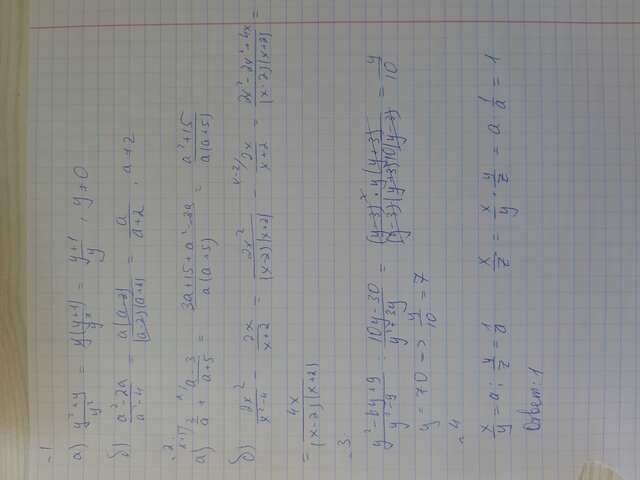 ~1
а) (y²+y)/y² = y(y+1)/y² = (y+1)/y, y≠0
б) (a²-2a)/(a²-4) = a(a-2)/((a-2)(a+2)) = a/(a+2), a≠2
~2
а) 3/a + (a-3)/(a+5) = (3a+15+a²-3a)/(a(a+5)) = (a²+15)/(a(a+5))
б) 2x²/(x²-4) - 2x/(x+2) = 2x²/((x-2)(x+2)) - 2x/(x+2) = (2x²-2x²+4x)/((x-2)(x+2)) =
= 4x/((x-2)(x+2))
~3
(y²-6y+9)/(y²-9) : (10y-30)/(y²+3y) = ((y-3)² · y(y+3))/((y-3)(y+3)10(y-3)) = y/10
y = 70 → y/10 = 7
~4
x/y = a; y/z = 1/a x/z = x/y · y/z = a · 1/a = 1
Ответ: 1